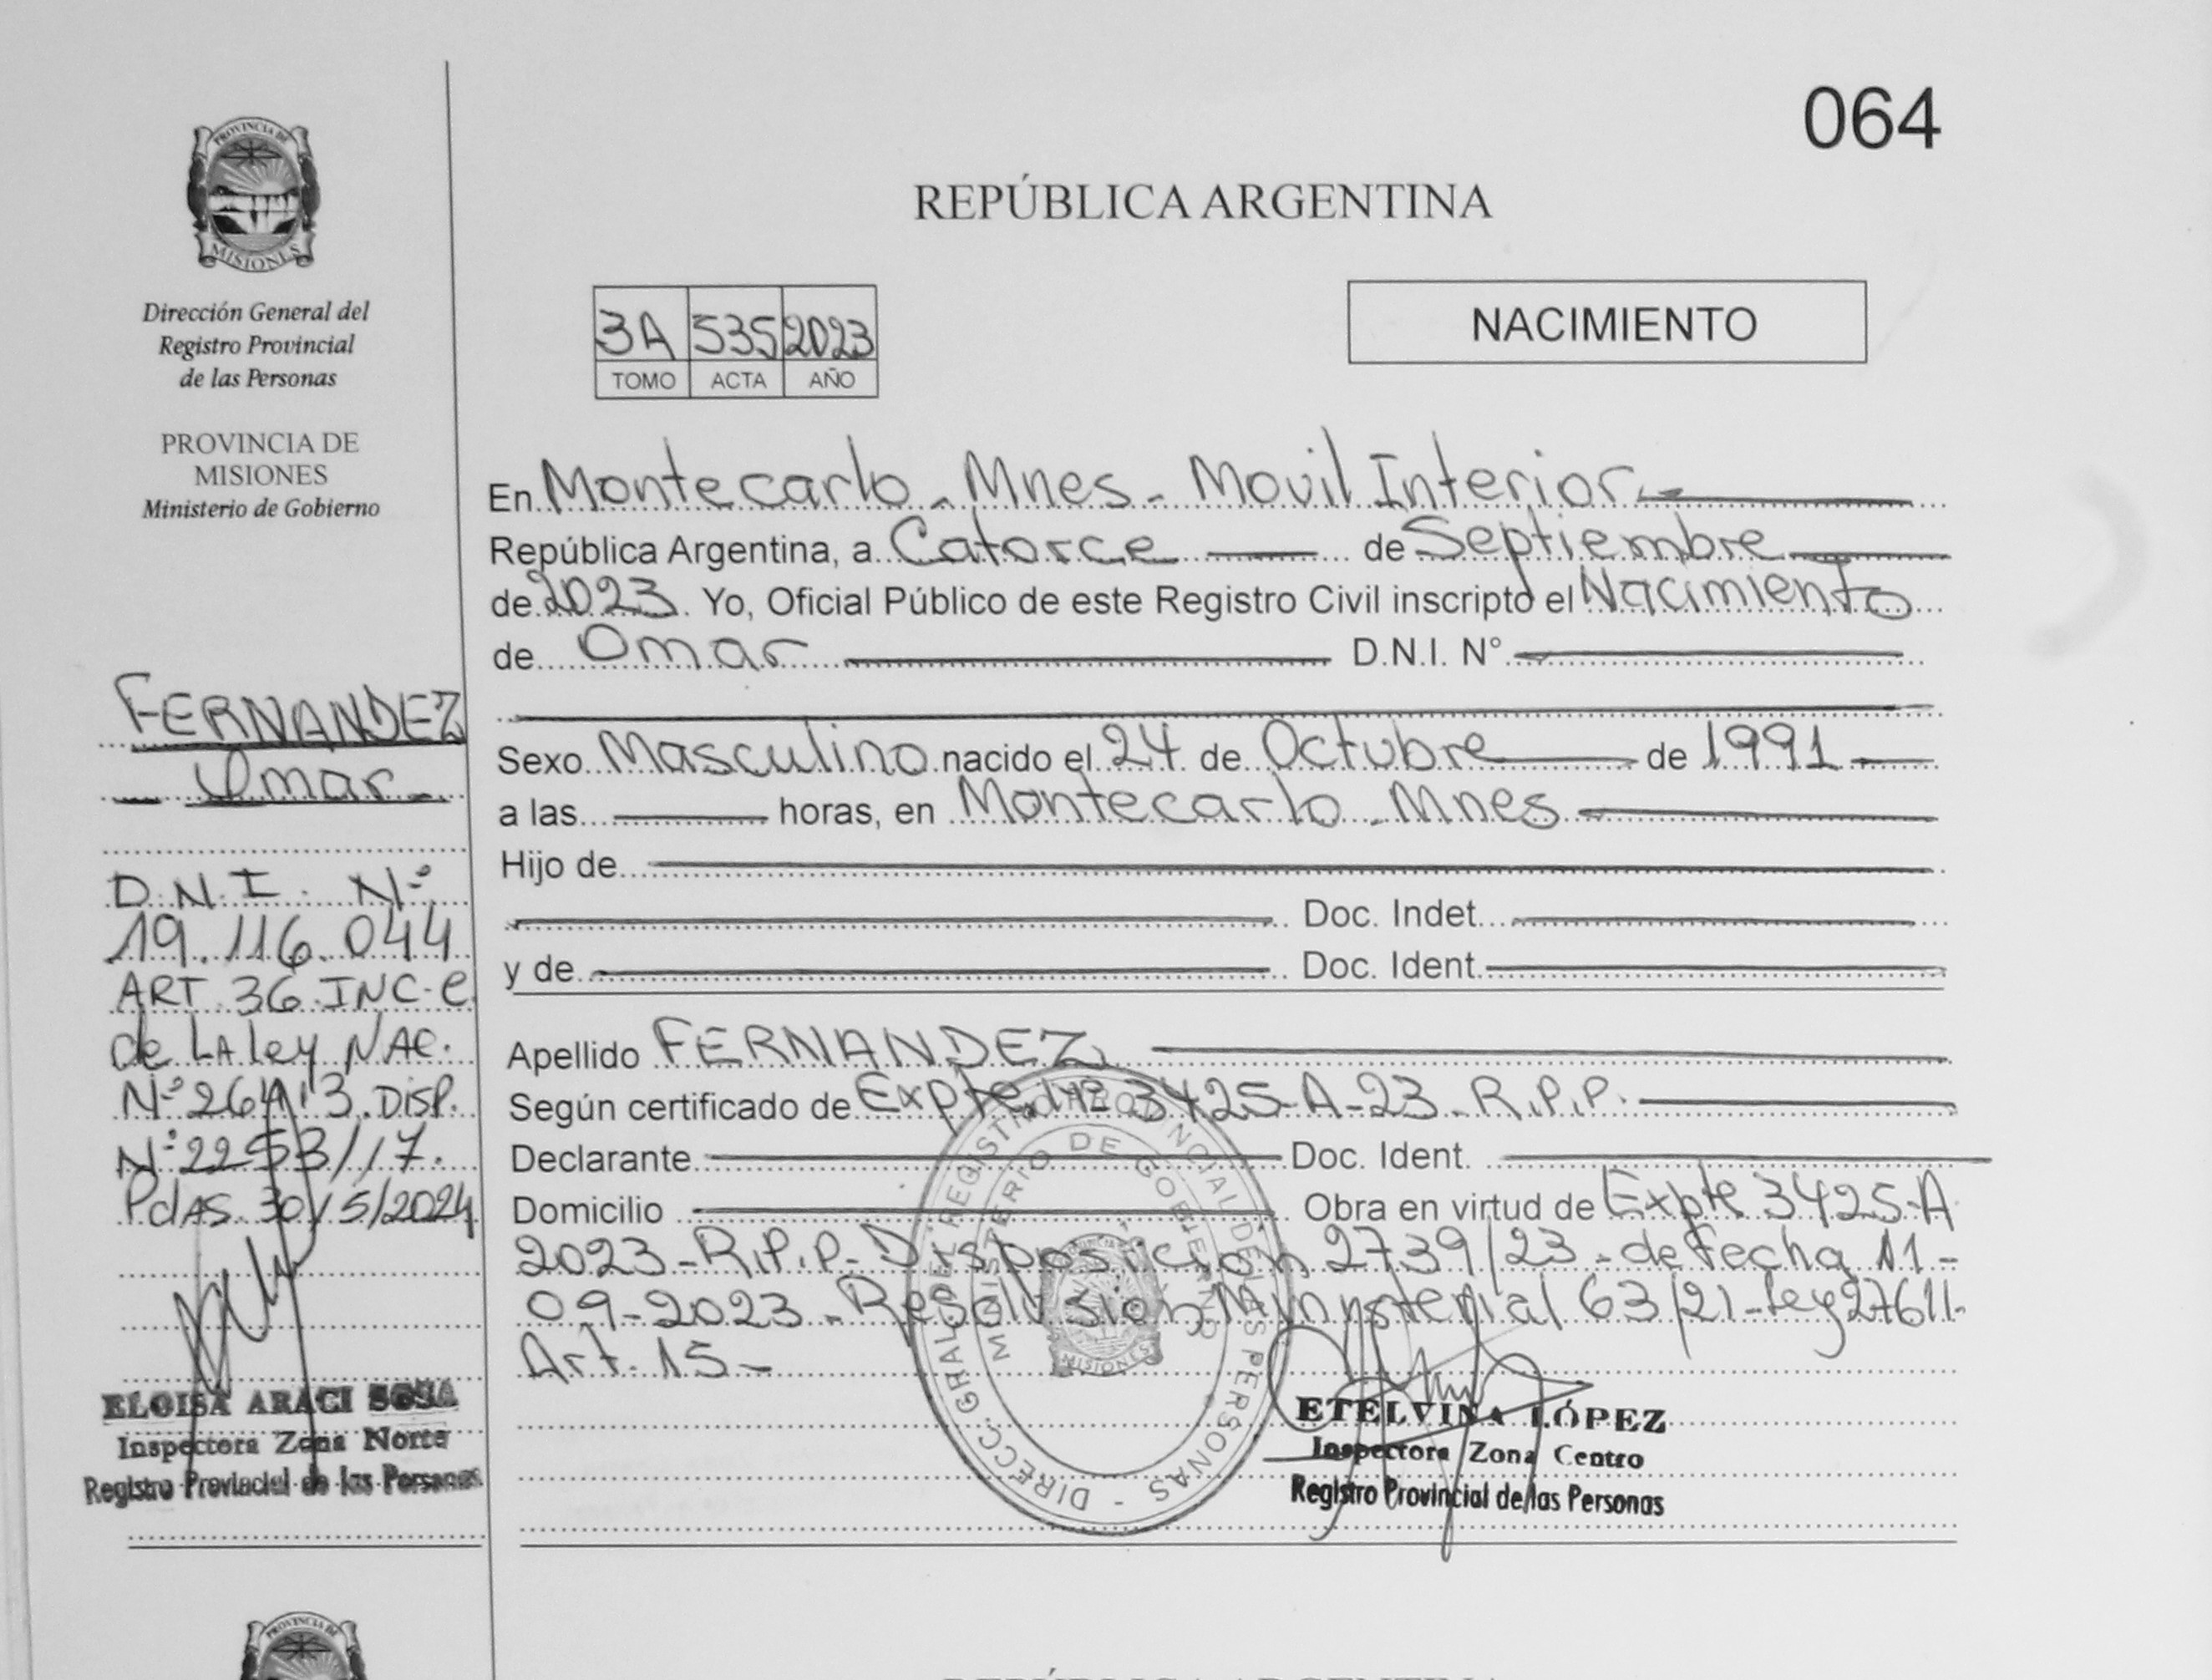 064
PROVINCIA DE
MISIONES
Dirección General del
Registro Provincial
de las Personas
PROVINCIA DE
MISIONES
Ministerio de Gobierno
FERNANDEZ
Omar
D.N.I. Nº
19.116.044
ART. 36. INC. e
de LA ley NAC.
Nº 26413. DISP.
Nº 2253/17.
PdAS. 30/5/2024
ELOISA ARACI SOSA
Inspectora Zona Norte
Registro Provincial de las Personas
REPÚBLICA ARGENTINA
3A 535 2023
TOMO ACTA AÑO
NACIMIENTO
En Montecarlo - Mnes - Movil Interior.-
República Argentina, a Catorce de Septiembre
de 2023. Yo, Oficial Público de este Registro Civil inscripto el Nacimiento
de Omar D.N.I. N°
Sexo Masculino nacido el 24 de Octubre de 1991
a las horas, en Montecarlo - Mnes
Hijo de
Doc. Indet.
y de Doc. Ident.
Apellido FERNANDEZ
Según certificado de Expte. Nº 3425-A-23. R.P.P.
Declarante Doc. Ident.
Domicilio Obra en virtud de Expte 3425-A
2023-R.P.P- Disposicion 2739/23 - de fecha 11-
09-2023 - Resolusion Ministerial 63/21 - Ley 27611-
Art. 15 -
DIRECC. GRAL. DEL REGISTRO PROVINCIAL DE LAS PERSONAS -
MINISTERIO DE GOBIERNO
MISIONES
ETELVINA LÓPEZ
Inspectora Zona Centro
Registro Provincial de las Personas
PROVINCIA DE